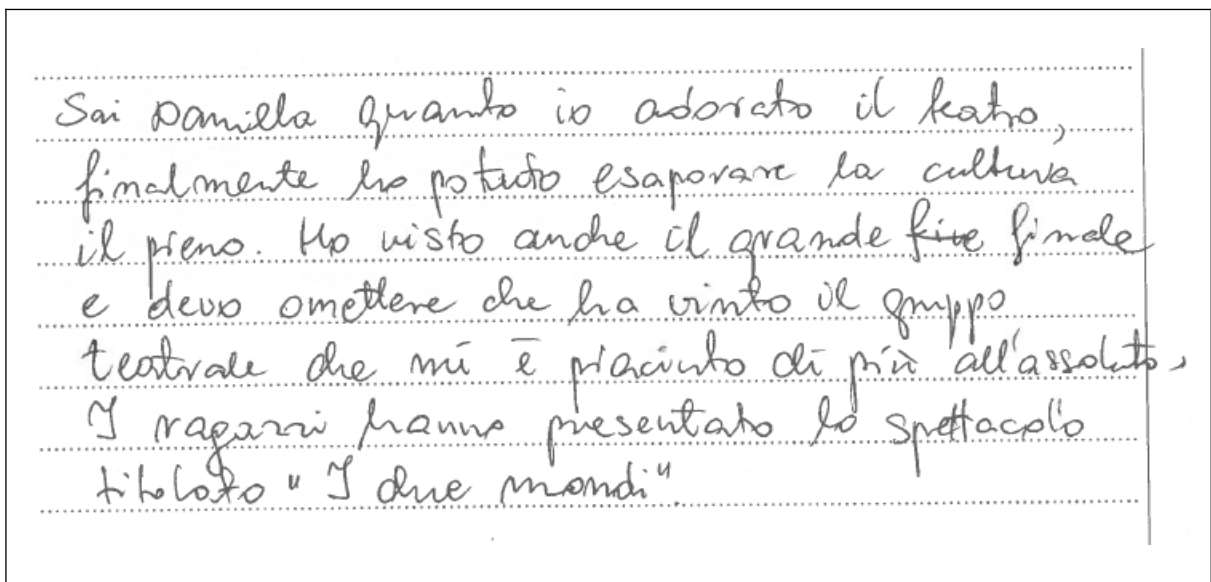 Sai Daniella quanto io adorato il teatro,
finalmente ho potuto esaporare la cultura
il pieno. Ho visto anche il grande finale
e devo omettere che ha vinto il gruppo
teatrale che mi è piaciuto di più all'assoluto,
I ragazzi hanno presentato lo spettacolo
titolato "I due mondi".